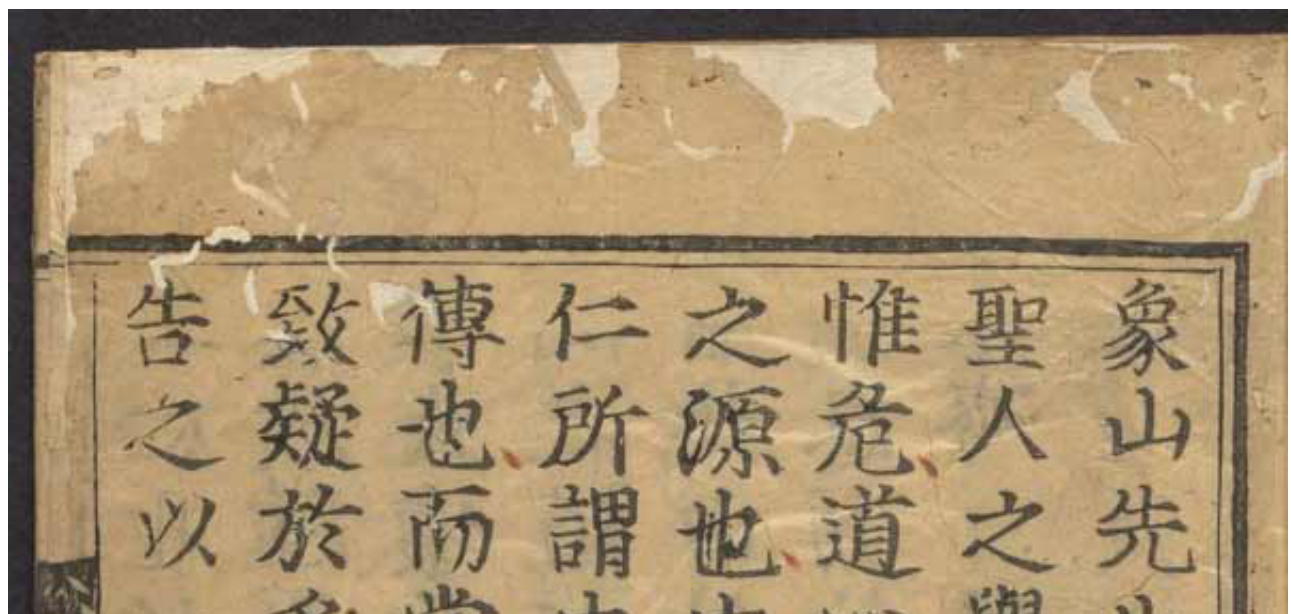 象山先
聖人之學
惟危道
之源也
仁所謂
傳也而當
致疑於多
告之以